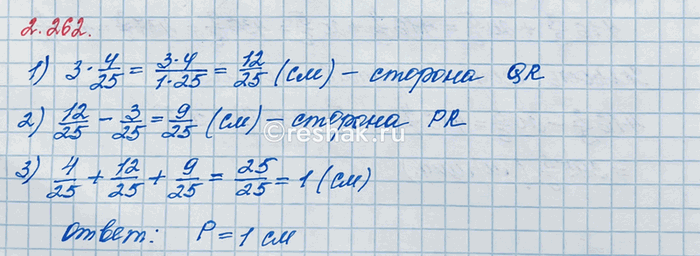 2.262.
1) 3 · 4/25 = 3·4/1·25 = 12/25 (см) – сторона QR
2) 12/25 – 3/25 = 9/25 (см) – сторона PR
©reshak.ru
3) 4/25 + 12/25 + 9/25 = 25/25 = 1 (см)
Ответ: P = 1 см